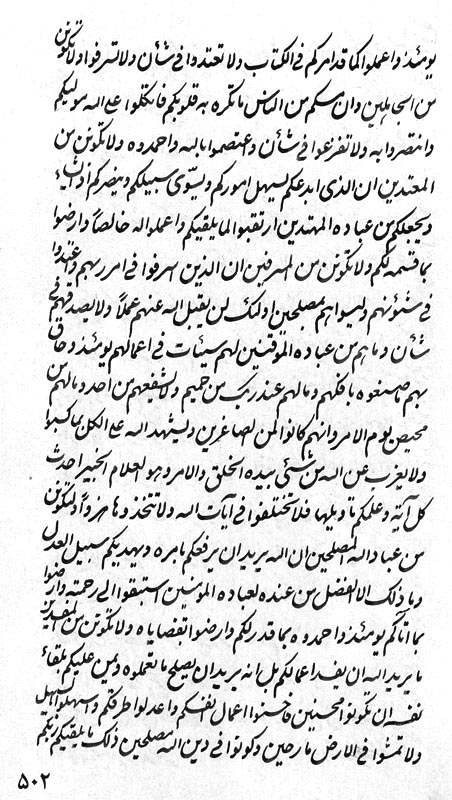 يومئذ و اعملوا كما قد امركم في الكتاب و لا تعتدوا في شأن و لا تسرفوا و لا تكونن
من الجاهلين و ان يمسكم من الناس ما تكره به قلوبكم فاتكلوا على الله موليكم
و انتصروا به و لا تفزعوا في شأن و اعتصموا بالله و احمدوه و لا تكونن من
المعتدين ان الذي ابدعكم ليسهل اموركم و يسوّى سبيلكم و ينصركم اذ يشاء
و يجعلكم من عباده المهتدين ارتقبوا لما يلقيكم و اعملوا له خالصاً و ارضوا
بما قسمه لكم و لا تكونن من المسرفين ان الذين يسرفوا في امر ربهم و اعتدوا
في شئونهم و ليسوا هم مصلحين اولئك لن يقبل الله عنهم عملاً و لا يصدقهم في
شأن و ما هم من عباده الموقنين لهم سيئات في اعمالهم يومئذ و حاق
بهم ما صنعوه بافكهم و ما لهم عند ربك من حميم و لا يشفعهم من احد و ما لهم من
محيص يوم الامر و انهم كانوا لمن الصاغرين و ليشهد الله على الكل بما كسبوا
و لا يعزب عن الله من شئ بيده الخلق و الامر و هو العلام الخبير احدث
كل آية و علمكم تأويلها فلا تختلفوا في آيات الله و لا تتخذوها هزواً و لتكونن
من عباد الله المصلحين ان الله يريد ان يرفعكم بامره و يهديكم سبيل العدل
و ما ذلك الا لفضل من عنده لعباده المؤمنين استبقوا الى رحمته و ارضوا
بما اتاكم يومئذ و احمدوه بما قدر لكم و ارضوا بقضاياه و لا تكونن من المفسدين
ما يريد الله ان يفسد اعمالكم بل انه يريد ان يصلح ما تعملوه و يمن عليكم بلقاء
نفسه ان تكونوا محسنين فاحسنوا اعمال انفسكم و اعدلوا طرقكم و اسهلوا السبيل
و لا تمشوا في الارض مارحين و كونوا في دين الله مصلحين ذلك ما يلقيكم ربكم
۵۰۲